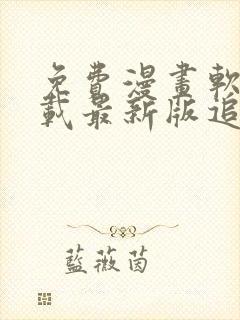 免費漫畫軟
載最新版追
藍薇茵